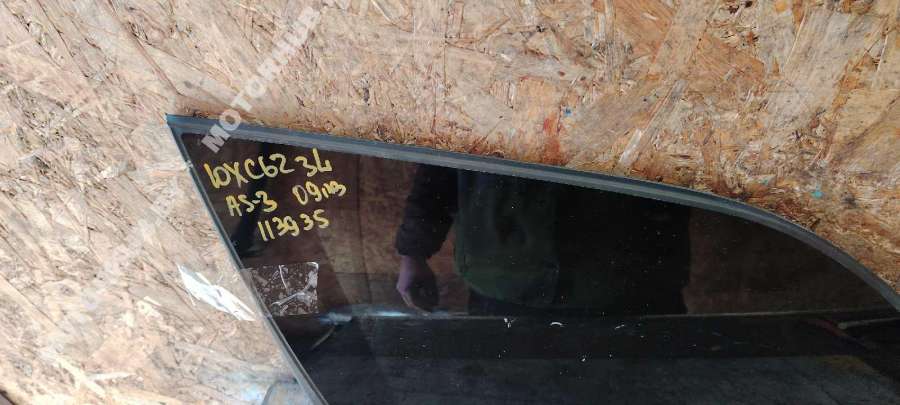 MOTORHUB
WXC62 3L
AS-3 09пз
113935